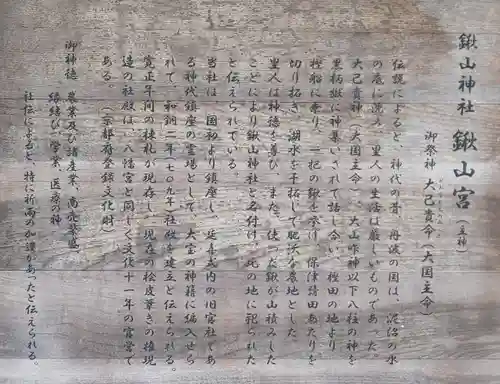 鍬山神社 鍬山宮(主神)
御祭神 大己貴命(大国主命)
伝説によると、神代の昔、丹波の国は、泥湖の水
の底に沈み、里人の生活は厳しいものであった。
大己貴神(大国主命)、大山咋神以下八柱の神を
黒柄嶽に神集いされて話し合い、樫田の地より
樫船に乗り、一把の鍬を挙げ、保津請田あたりを
切り拓き、湖水を干拓して肥沃な農地とした。
里人は神徳を尊び、また、使った鍬が山積みした
ことにより鍬山神社と名付け、此の地に祀られた
と伝えられている。
当社は、国初より鎮座し、延喜式内の旧官社であ
る神代鎮座の霊場として、大宮の神籍に編入せら
れて、和銅二年(七〇九年)社殿を建立と伝えられる。
寛正年間の棟札が現存し、現在の桧皮葺きの権現
造の社殿は、八幡宮と同じく文化十一年の官営で
ある。(京都府登録文化財)
御神徳
農業及び諸産業、商売繁盛、
縁結び、学業、医療の神
社伝によると、特に祈雨の加護があったと伝えられる。